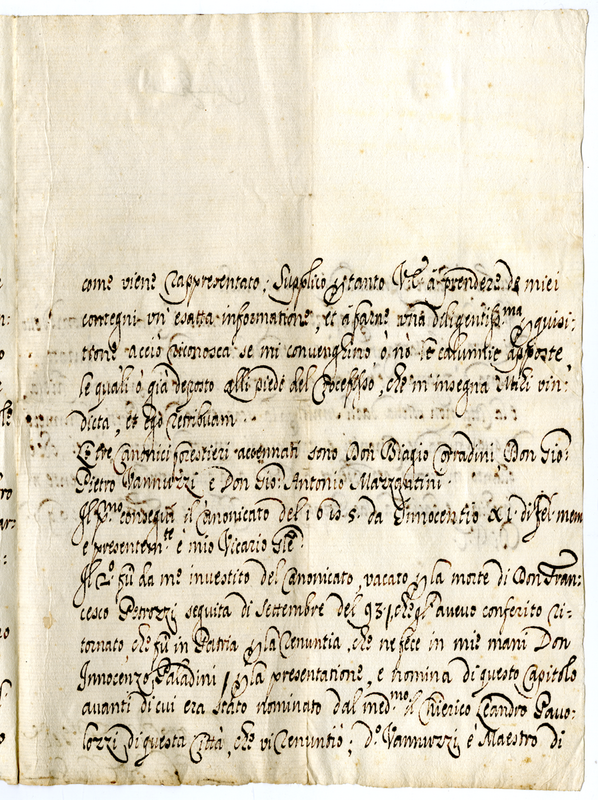 come viene rappresentato; Supplico p tanto V.E. à prendere de miei
contegni un' esatta informatione, et à farne una diligentiss.ma p quisi-
tione acciò riconosca se mi convenghino ò nò le calunnie apposte,
le quali ò già deposto alli piedi del Crocefisso, che m'insegna Mihi vin:
dicta, et ego retribuam.
Li tre Canonici forestieri accennati sono Don Biagio Corradini, Don Gio:
Pietro Vannuzzi, e Don Gio: Antonio Mazzantini.
Il p.mo conseguì il Canonicato del 1685. da Innocentio XI. di fel. mem
e presentem.te è mio Vicario G.le
Il 2.o fù da me investito del Canonicato, vacato p la morte di Don Fran-
cesco Petrozzi seguita di Settembre del 93. che gl' avevo conferito ri-
tornato, che fù in Patria p la renuntia, che ne fece in mie mani Don
Innocenzo Paladini, p la presentatione, e nomina di questo Capitolo
avanti di cui era stato nominato dal med.mo il Chierico Leandro Pavo-
lozzi di questa Città, che vi renuntiò; d.o Vannuzzi è Maestro di